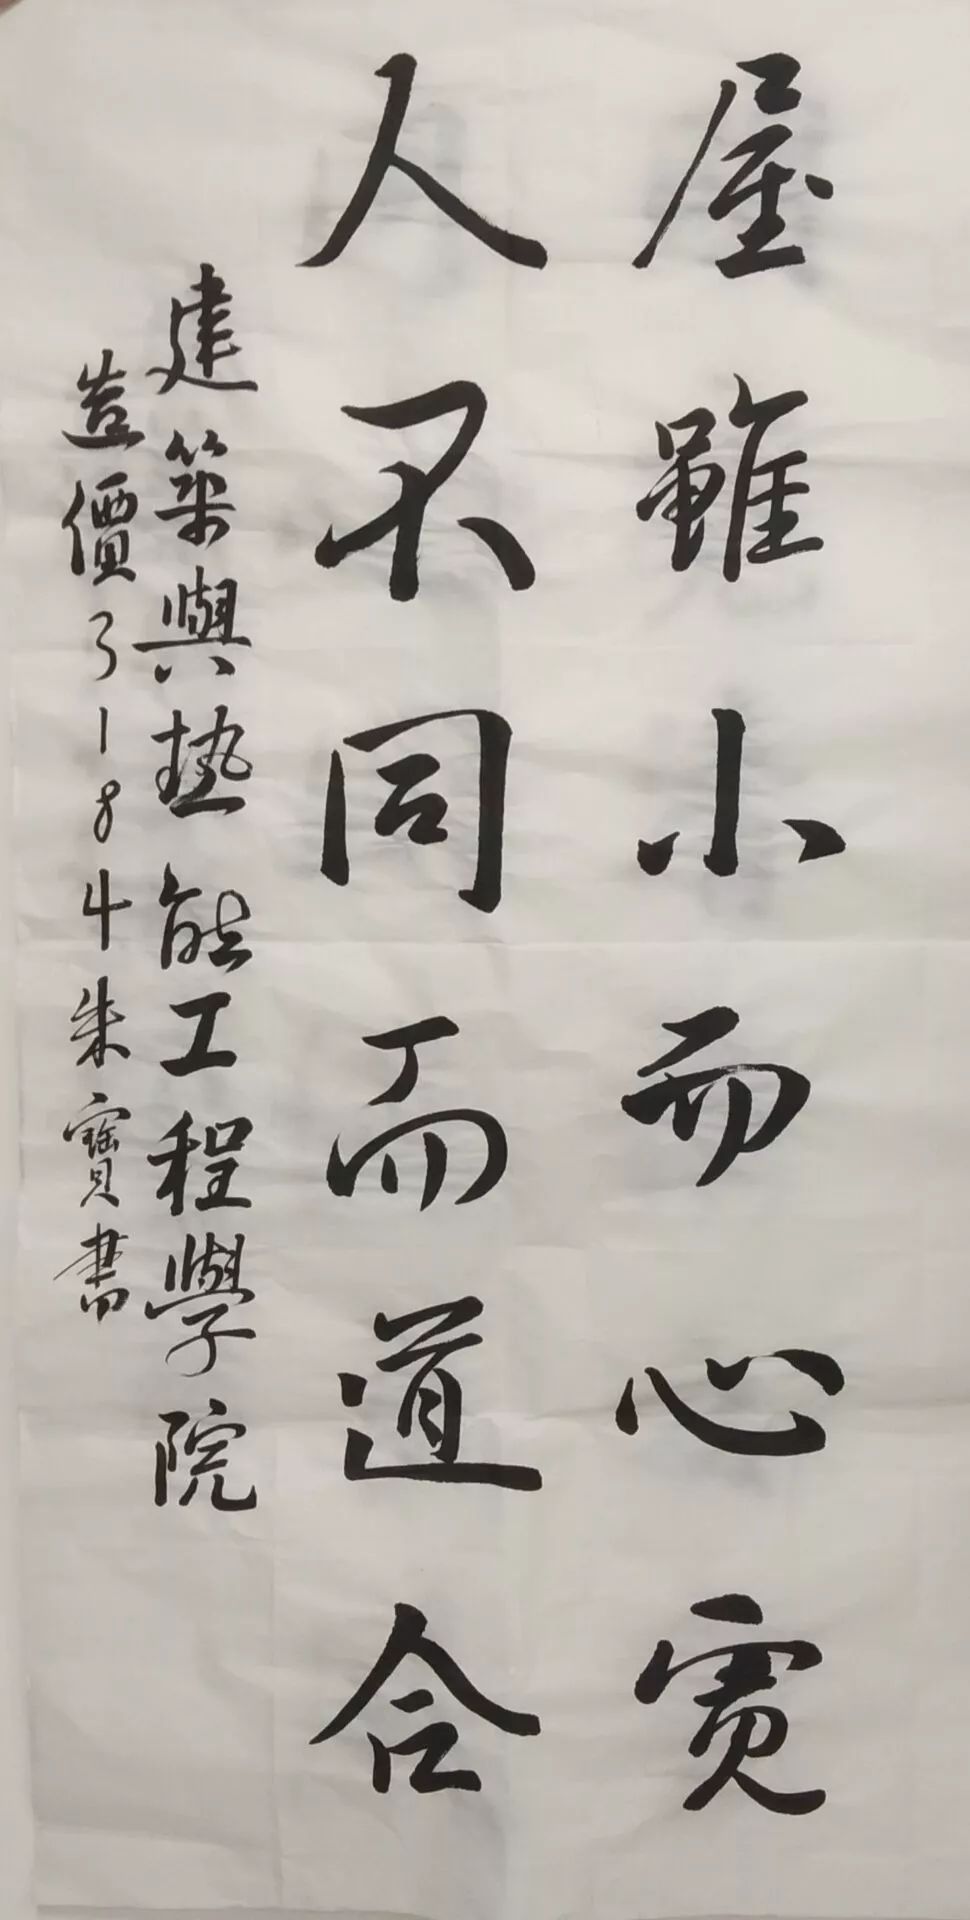 屋雖小而心寬
人不同而道合
建築與熱能工程學院
造價3184朱寶書